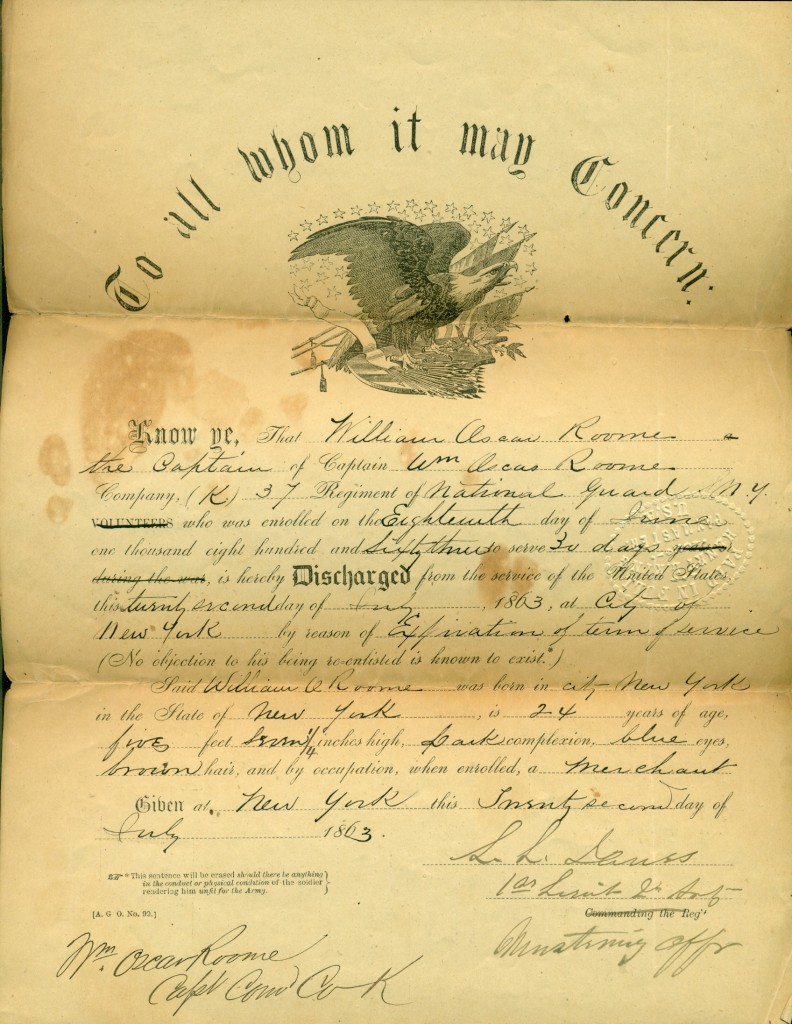 To all whom it may Concern:
Know ye, That William Oscar Roome a
the Captain of Captain Wm Oscar Roome
Company, (K) 37 Regiment of National Guard S N.Y.
VOLUNTEERS who was enrolled on the Eighteenth day of June
one thousand eight hundred and Sixty three to serve 30 days years or
during the war, is hereby Discharged from the service of the United States,
this twenty second day of July, 1863, at City of
New York by reason of Expiration of term of service
(No objection to his being re-enlisted is known to exist.*)
Said William O Roome was born in city New York
in the State of New York, is 24 years of age,
five feet Seven 1/4 inches high, Dark complexion, blue eyes,
brown hair, and by occupation, when enrolled, a Merchant
Given at New York this Twenty second day of
July 1863.
S. L.
1st Lieut Art
☞ * This sentence will be erased should there be anything
in the conduct or physical condition of the soldier
rendering him unfit for the Army.
[A. G O. No. 99.]
Commanding the Regt
Mustering Offr
Wm. Oscar Roome
Capt Comd Co K